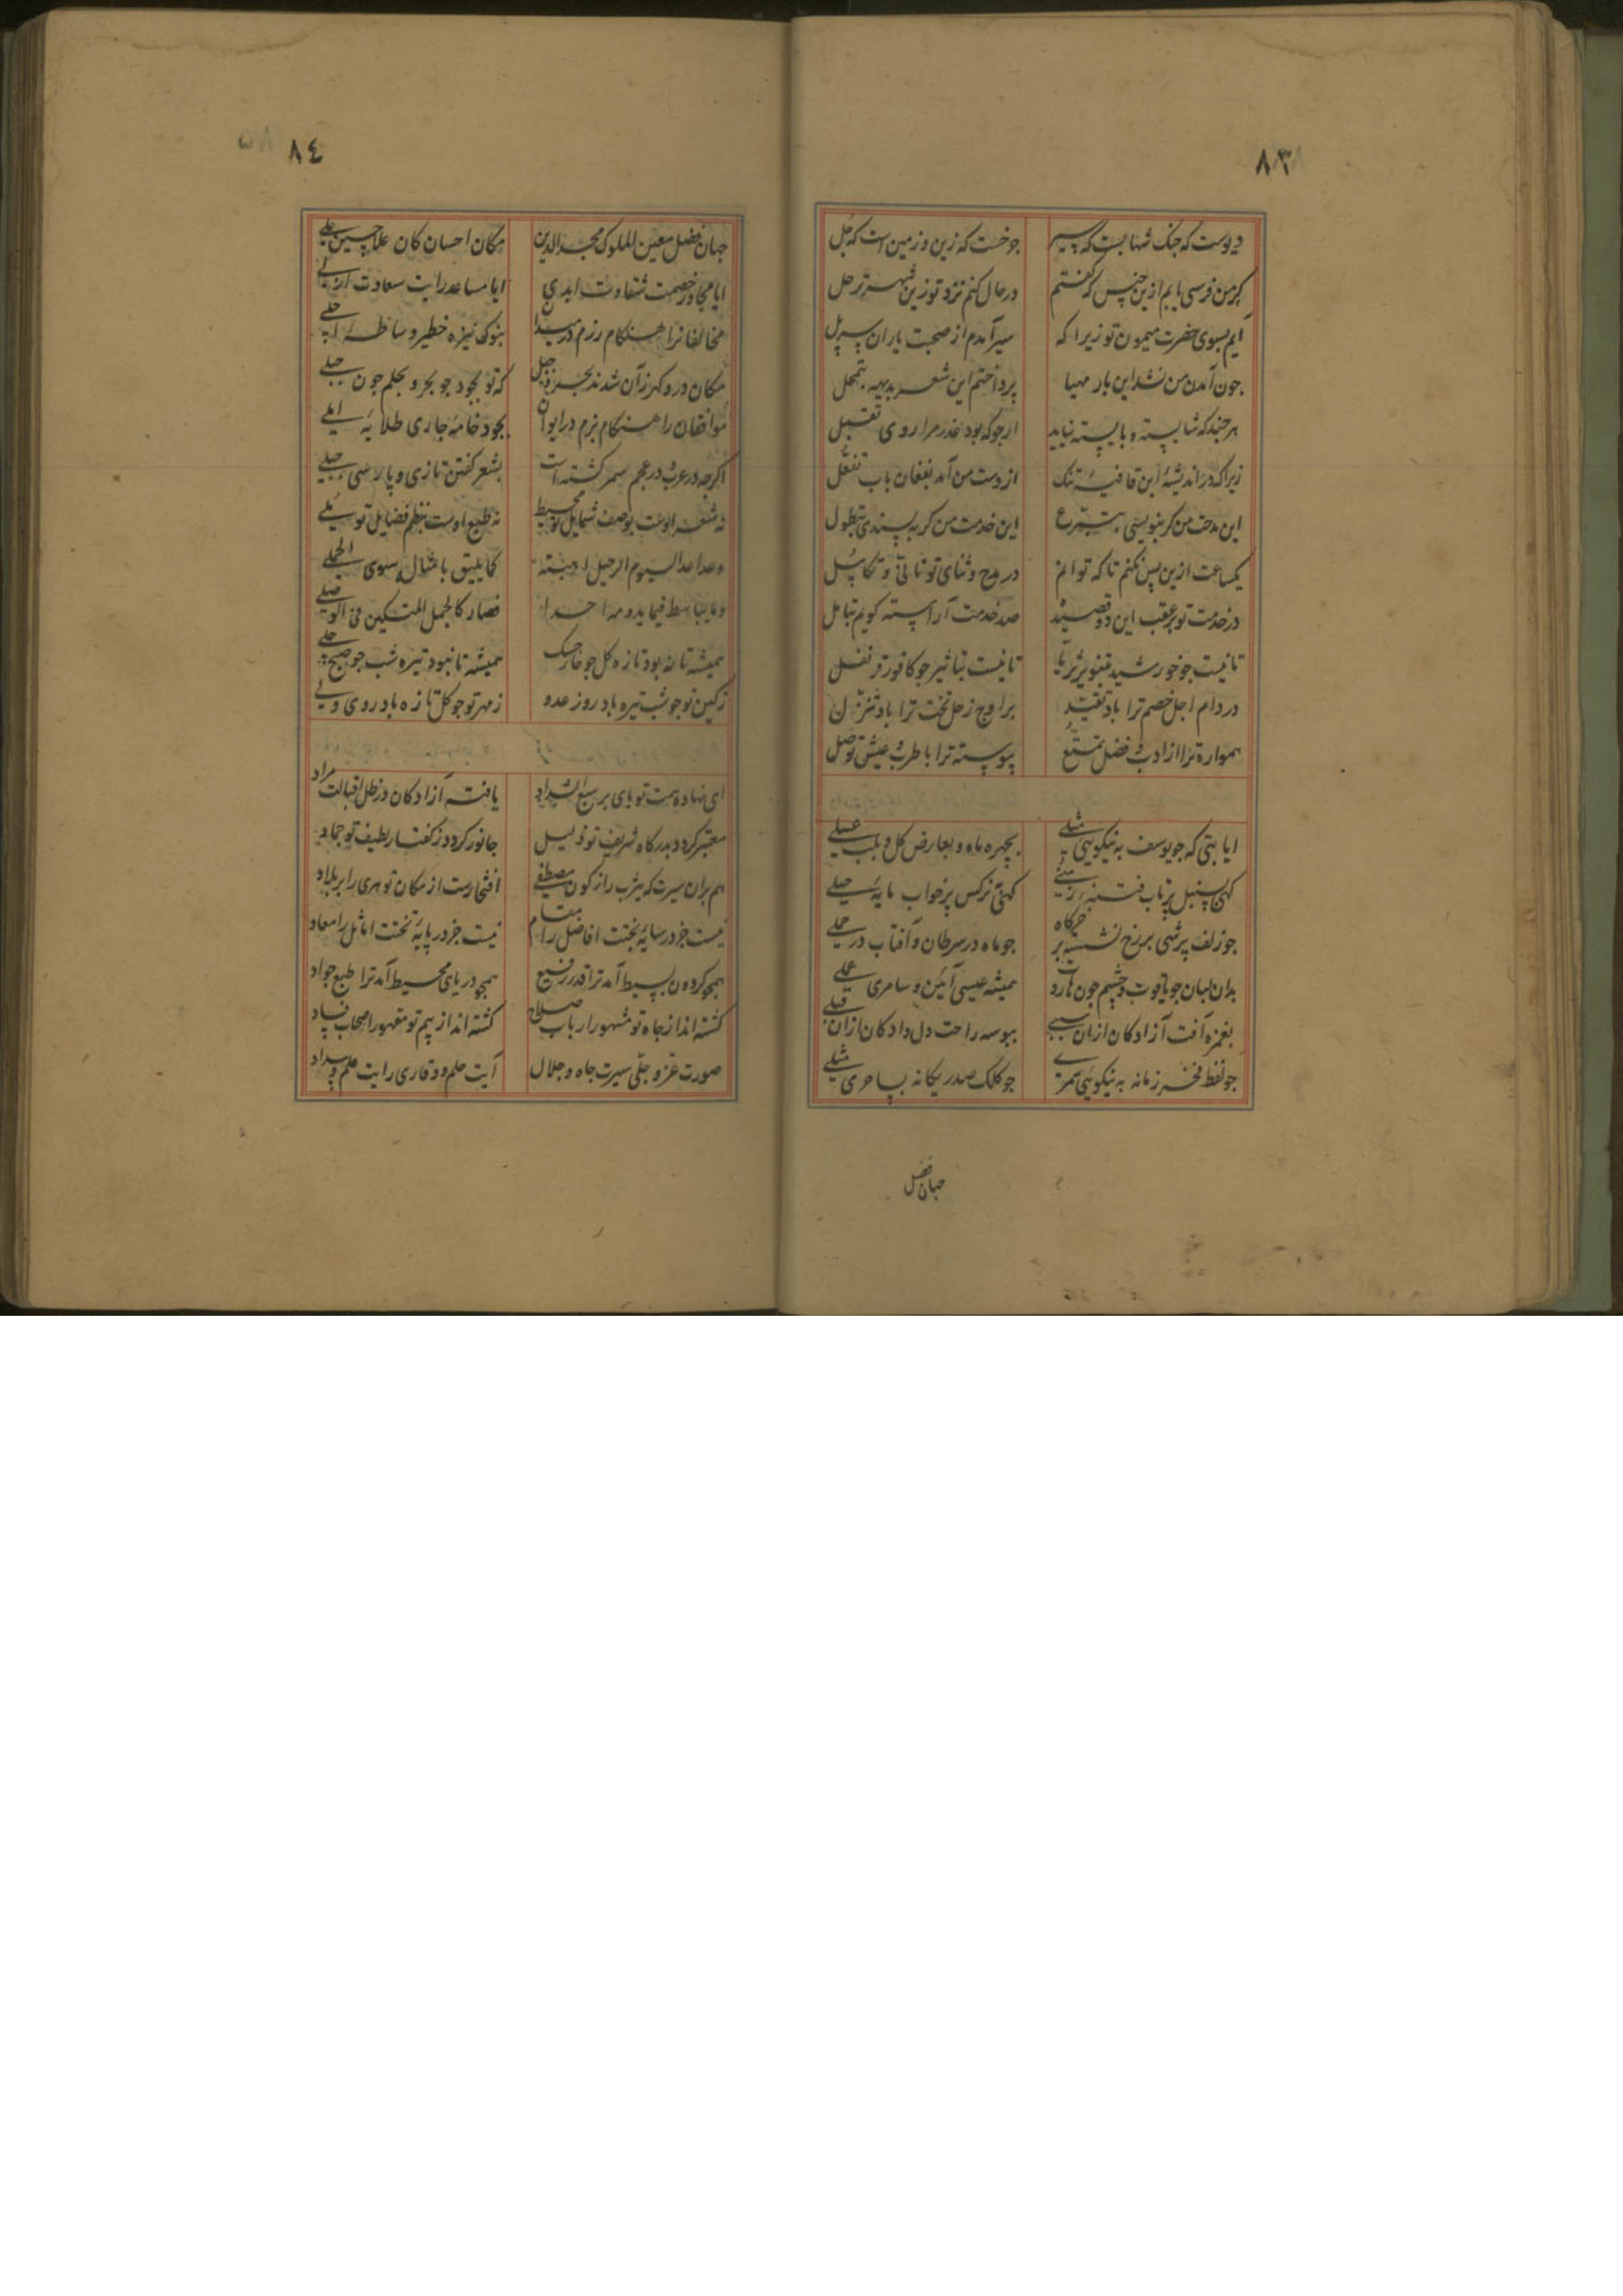 ۸۳
دیوست که جنک شهابست که سیر جو خست که زین و زمین است که جل
کر من فرسی یابم ازین جنس که کفتم در حال کنم نزد تو زین شهر ترحل
آیم بسوی حضرت میمون تو زیرا که سیر آمدم از صحبت یاران
جون آمدن من نشد این بار مهیا پرداختم این شعر بدیهه بتمحل
هرجند که شایسته و بایسته نیاید ارجو که بود عذر مرا روی تقبل
زیرا که در اندیشۀ این قافیۀ تنک از دست من آمد بفغان باب تفعل
این مدحت من کر بنویسی بتبرع این خدمت من کر بپسندی بتطول
یکساعت ازین پس نکنم تا که توانم در مدح و ثنای تو تانی و تکاسل
در خدمت تو بر عقب این دو قصیده صد خدمت آراسته کویم بتامل
تا نیست جو خورشید بتنویر ثریا تا نیست بتاثیر جو کافور قرنفل
در دام اجل خصم ترا باد تقید بر اوج زحل تخت ترا باد تنزل
همواره ترا از ادب و فضل تمتع پیوسته ترا با طرب و عیش توصل
ایا بتی که جو یوسف به نیکویی مثلی بچهره ماه و بعارض کل و بلب عسلی
کهی سنبل پرتاب فتنۀ زمنی کهی نرکس پرخواب مایۀ حیلی
جو زلف پرشبی بر رخ نشسته بر خرکاه جو ماه در سرطان و آفتاب در حملی
بدان لبان جو یاقوت و چشم جون هاروت همیشه عیسی آئین و سامری عملی
بغمزه آفت آزادکان ازان سببی ببوسه راحت دل دادکان ازان قبلی
جو لفظ مفخر زمانه به نیکویی سمری جو کلک صدر یکانه بساحری مثلی
جهان فضل
۸٤
جهان فضل معین الملوک مجدالدین مکان احسان کان علا حسین علی
ایا مجاور خصمت شقاوت ابدی ایا مساعد رایت سعادت ازلی
مخالفانرا هنکام رزم در میدان بنوک نیزه خطیر و ساطۀ اجلی
مکان در و کهر زآن شدند بحر و جبل که تو بجود جو بحر و بحلم جون جبلی
موافقان را هنکام بزم در ایوان بجود خامۀ جاری طلایۀ املی
اکرجه در عرب و در عجم سمر کشته است بشعر کفتن تازی و پارسی جبلی
نه شعر اوست بوصف شمایل تو محیط نه طبع اوست بنظم فضایل تو ملی
الرحیل کما یلیق بامثال سوی الجمل
فصار کالجمل المتکین فی الوحل
همیشه تا نه بود تازه کل جو خار خشک همیشه تا نبود تیره شب جو صبح جلی
زکین تو جو شب تیره باد روز عدو زمهر تو جو کل تازه باد روی ولی
ای نهاده همت تو پای بر سبع الشداد یافته آزادکان در ظل اقبالت مراد
معتبر کردد بدرکاه شریف تو ذلیل جانور کردد ز کفتار لطیف تو جماد
هم بران سیرت که یثرب را ز کون مصطفی افتخارست از مکان تو هری را بر بلاد
نیست جز در سایۀ بختت افاضل را مقام نیست جز در پایۀ تختت اماثل را معاد
همجو کردون بسیط آمد ترا قدر رفیع همجو دریای محیط آمد ترا طبع جواد
کشته اند از جاه تو مشهور ارباب صلاح کشته اند از بیم تو مقهور اصحاب فساد
صورت عز و جلی سیرت جاه و جلال آیت حلم و وقاری رایت علم و سداد